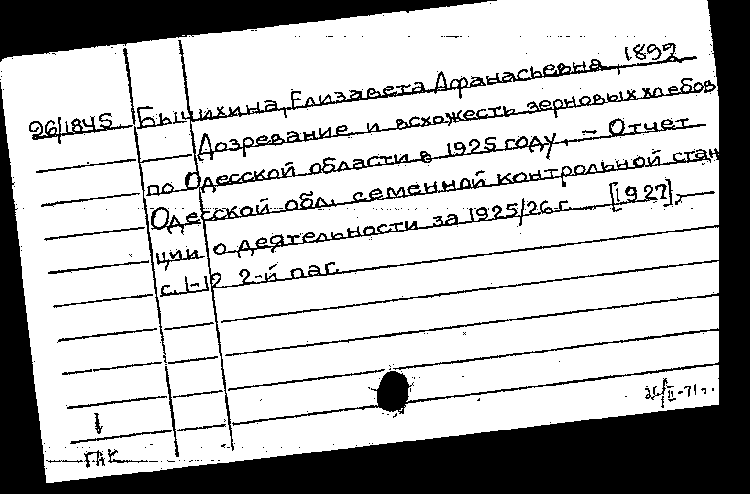 26/1845. Бычихина, Елизавета Афанасьевна, 1892
Дозревание и всхожесть зерновых хлебов
по Одесской области в 1925 году. – Отчет
Одесской обл. семенной контрольной стан
ции о деятельности за 1925/26 г. [1927],
с. 1-12 2-й паг.
ГАК